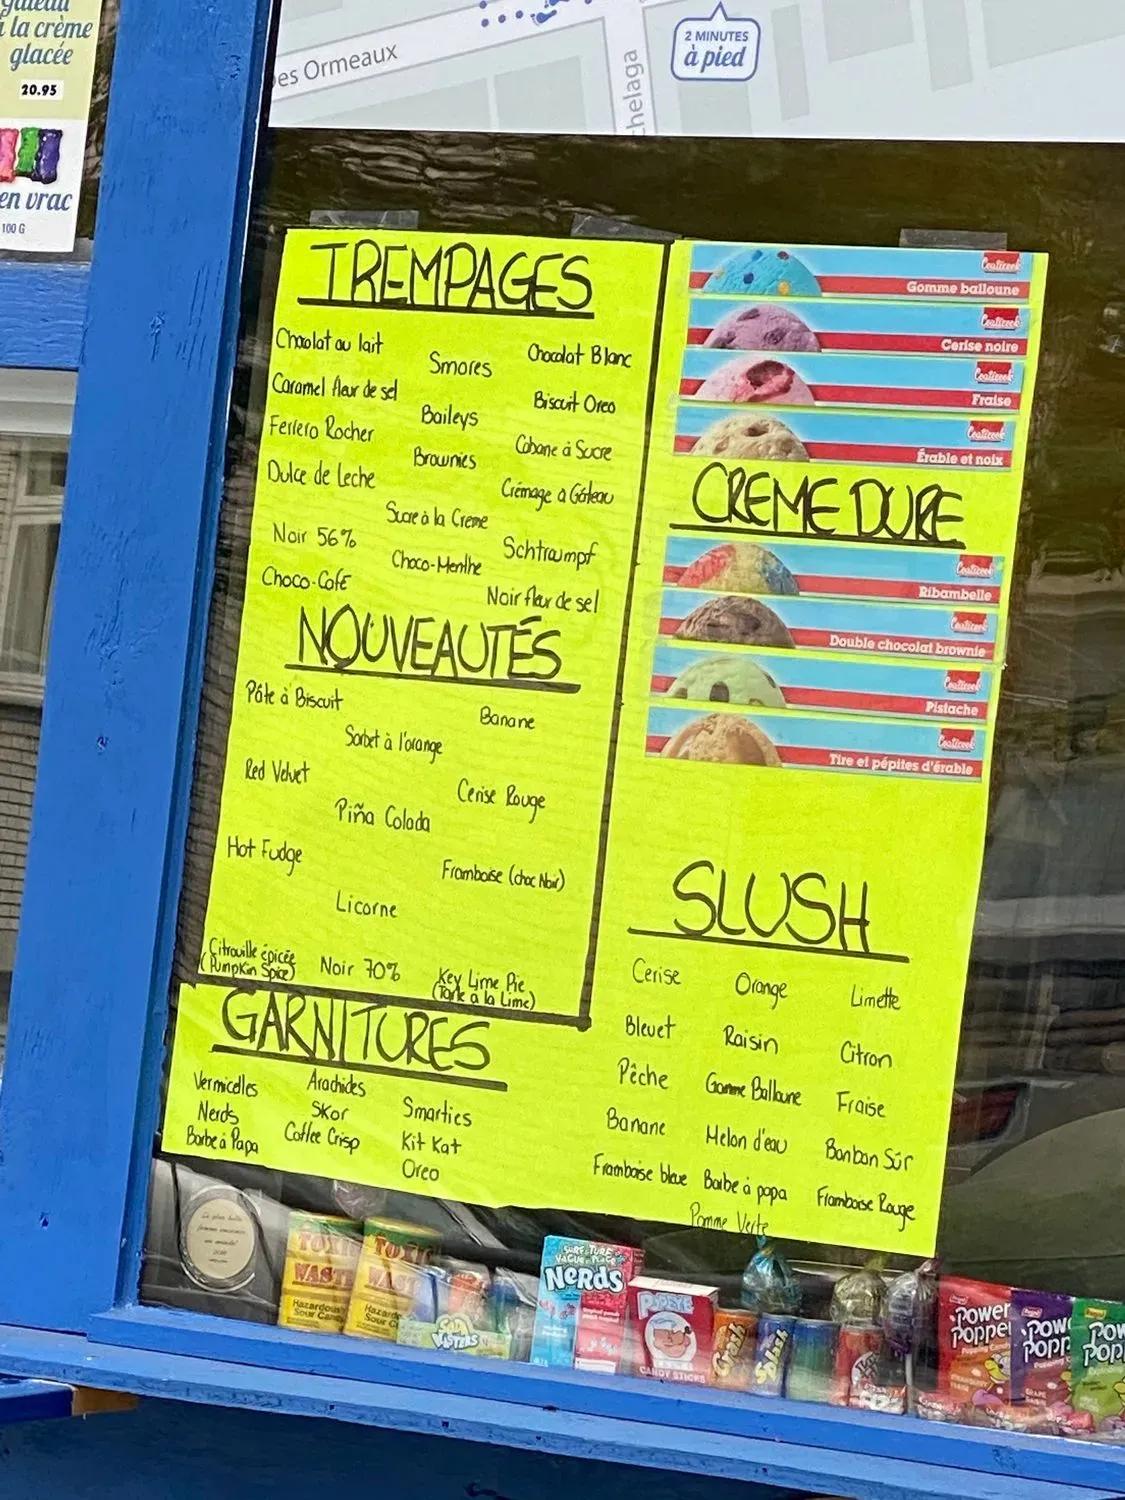 gâteau
à la crème
glacée
20.95
en vrac
100 G
des Ormeaux
chelaga
2 MINUTES
à pied
TREMPAGES
Chocolat au lait
Smores
Chocolat Blanc
Caramel fleur de sel
Baileys
Biscuit Oreo
Ferrero Rocher
Brownies
Cabane à Sucre
Dulce de Leche
Crémage à Gâteau
Sucre à la Creme
Noir 56%
Choco-Menthe
Schtroumpf
Choco-Café
Noir fleur de sel
NOUVEAUTÉS
Pâte à Biscuit
Banane
Sorbet à l'orange
Red Velvet
Cerise Rouge
Piña Colada
Hot Fudge
Framboise (choc Noir)
Licorne
Citrouille épicée
(Pumpkin Spice)
Noir 70%
Key Lime Pie
(Tarte à la Lime)
GARNITURES
Vermicelles
Arachides
Smarties
Nerds
Skor
Kit Kat
Barbe à Papa
Coffee Crisp
Oreo
Coaticook
Gomme balloune
Coaticook
Cerise noire
Coaticook
Fraise
Coaticook
Érable et noix
CREME DURE
Coaticook
Ribambelle
Coaticook
Double chocolat brownie
Coaticook
Pistache
Coaticook
Tire et pépites d'érable
SLUSH
Cerise
Orange
Limette
Bleuet
Raisin
Citron
Pêche
Gomme Balloune
Fraise
Banane
Melon d'eau
Bonbon Sûr
Framboise bleue
Barbe à papa
Framboise Rouge
Pomme Verte
TOXIC
WASTE
Hazardously
Sour Candy
TOXIC
WASTE
Hazardously
Sour Candy
SURF & TURF
VAGUE & PLAGE
Nerds
POPEYE
CANDY STICKS
Crush
Power
Popper
Pow
Popp
Pow
Pop